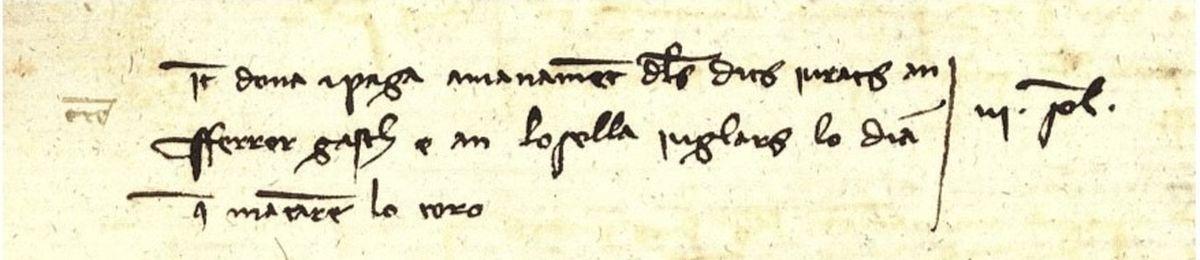 It dona e paga a manament dls dits jurats an
fferrer gasch e an losella juglars lo dia
q mataren lo toro
iii. sol.